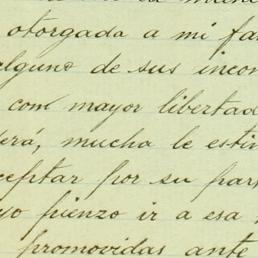 otorgada a mi fa
alguno de sus incon
con mayor libertad
erá, mucha le estim
ceptar por su par
yo pienzo ir a esa
promovidas ante